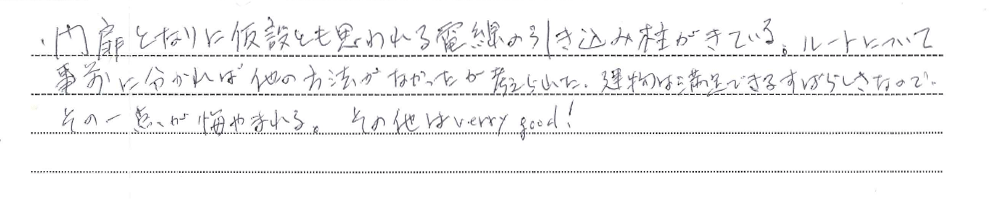 ・門扉となりに仮設とも思われる電線の引き込み柱がきている。ルートについて
事前に分かれば他の方法がなかったか考えられた。建物は満足できるすばらしきなので、
その一点が悔やまれる。その他はverry good!